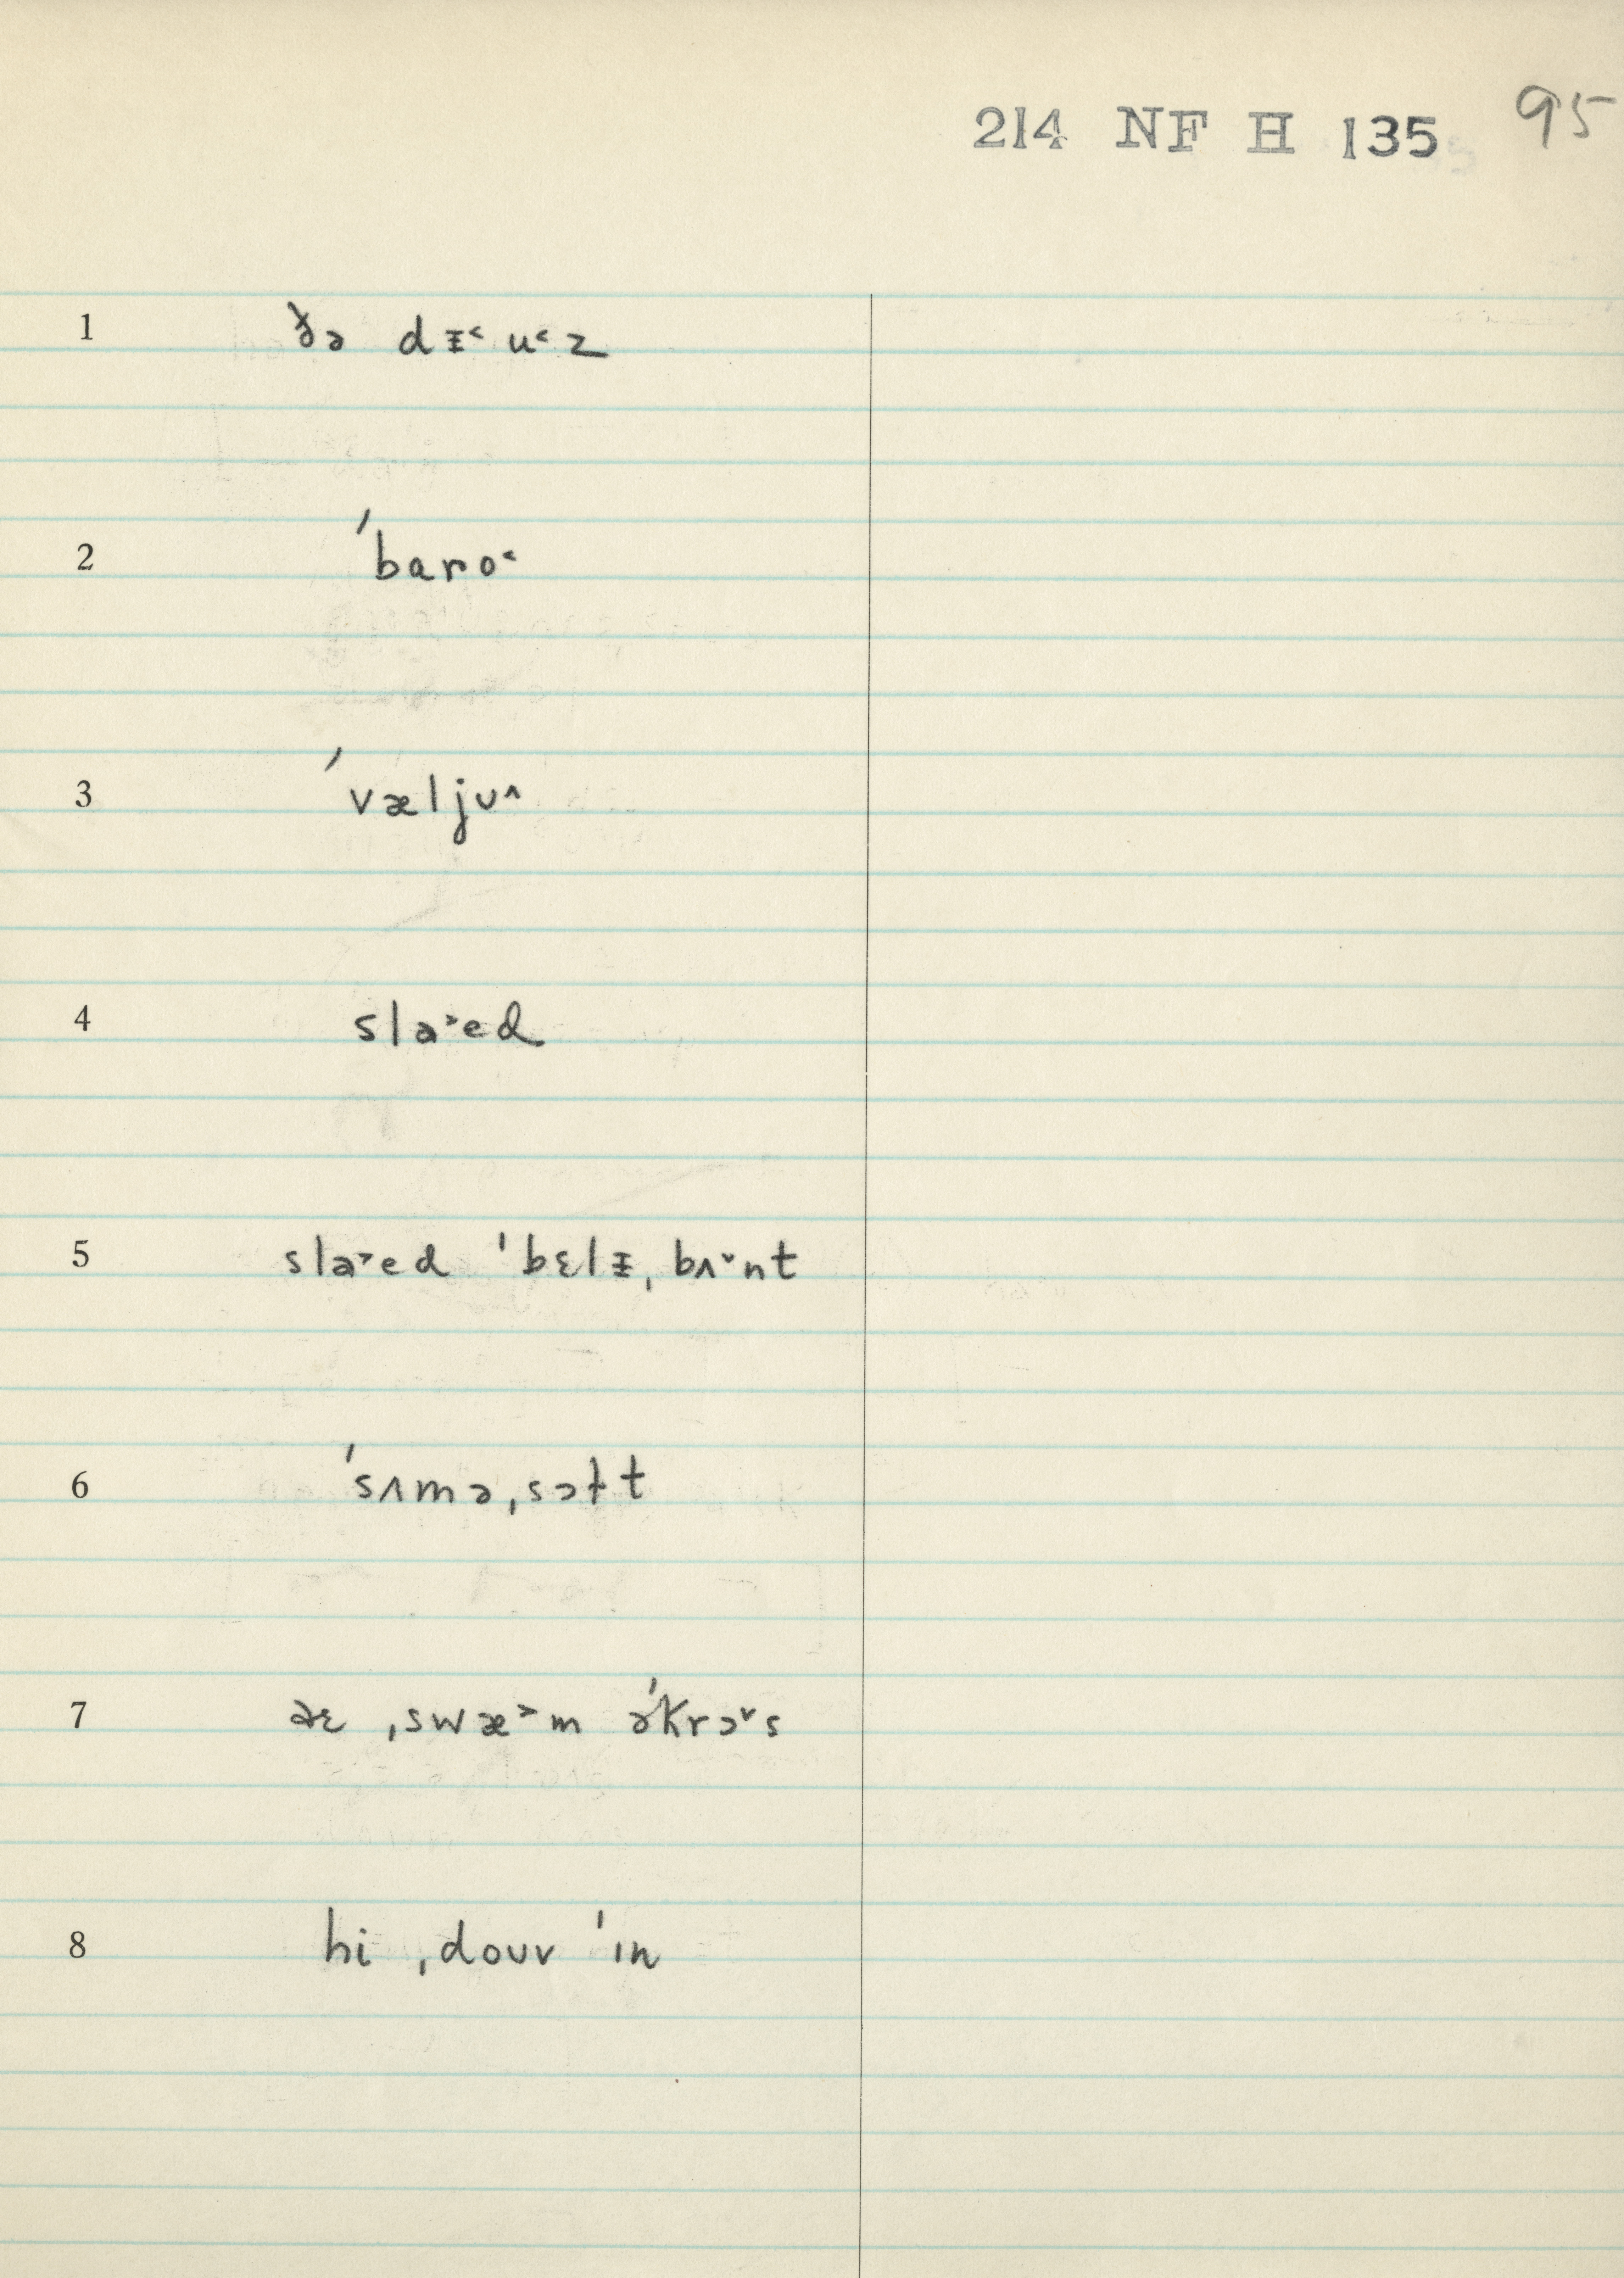 214 NF H 135 95
1 ðə dᵻ˂ u˂ z
2 ˈbaro˂
3 ˈvæljʊ˄
4 sla˃ed
5 sla˃ed ˈbɛlᵻˌbʌ˅nt
6 ˈsʌməˌsɔɫt
7 aɛ ˌswæ˃m əˈkrɔ˅s
8 hi ˌdoʊv ˈɪn